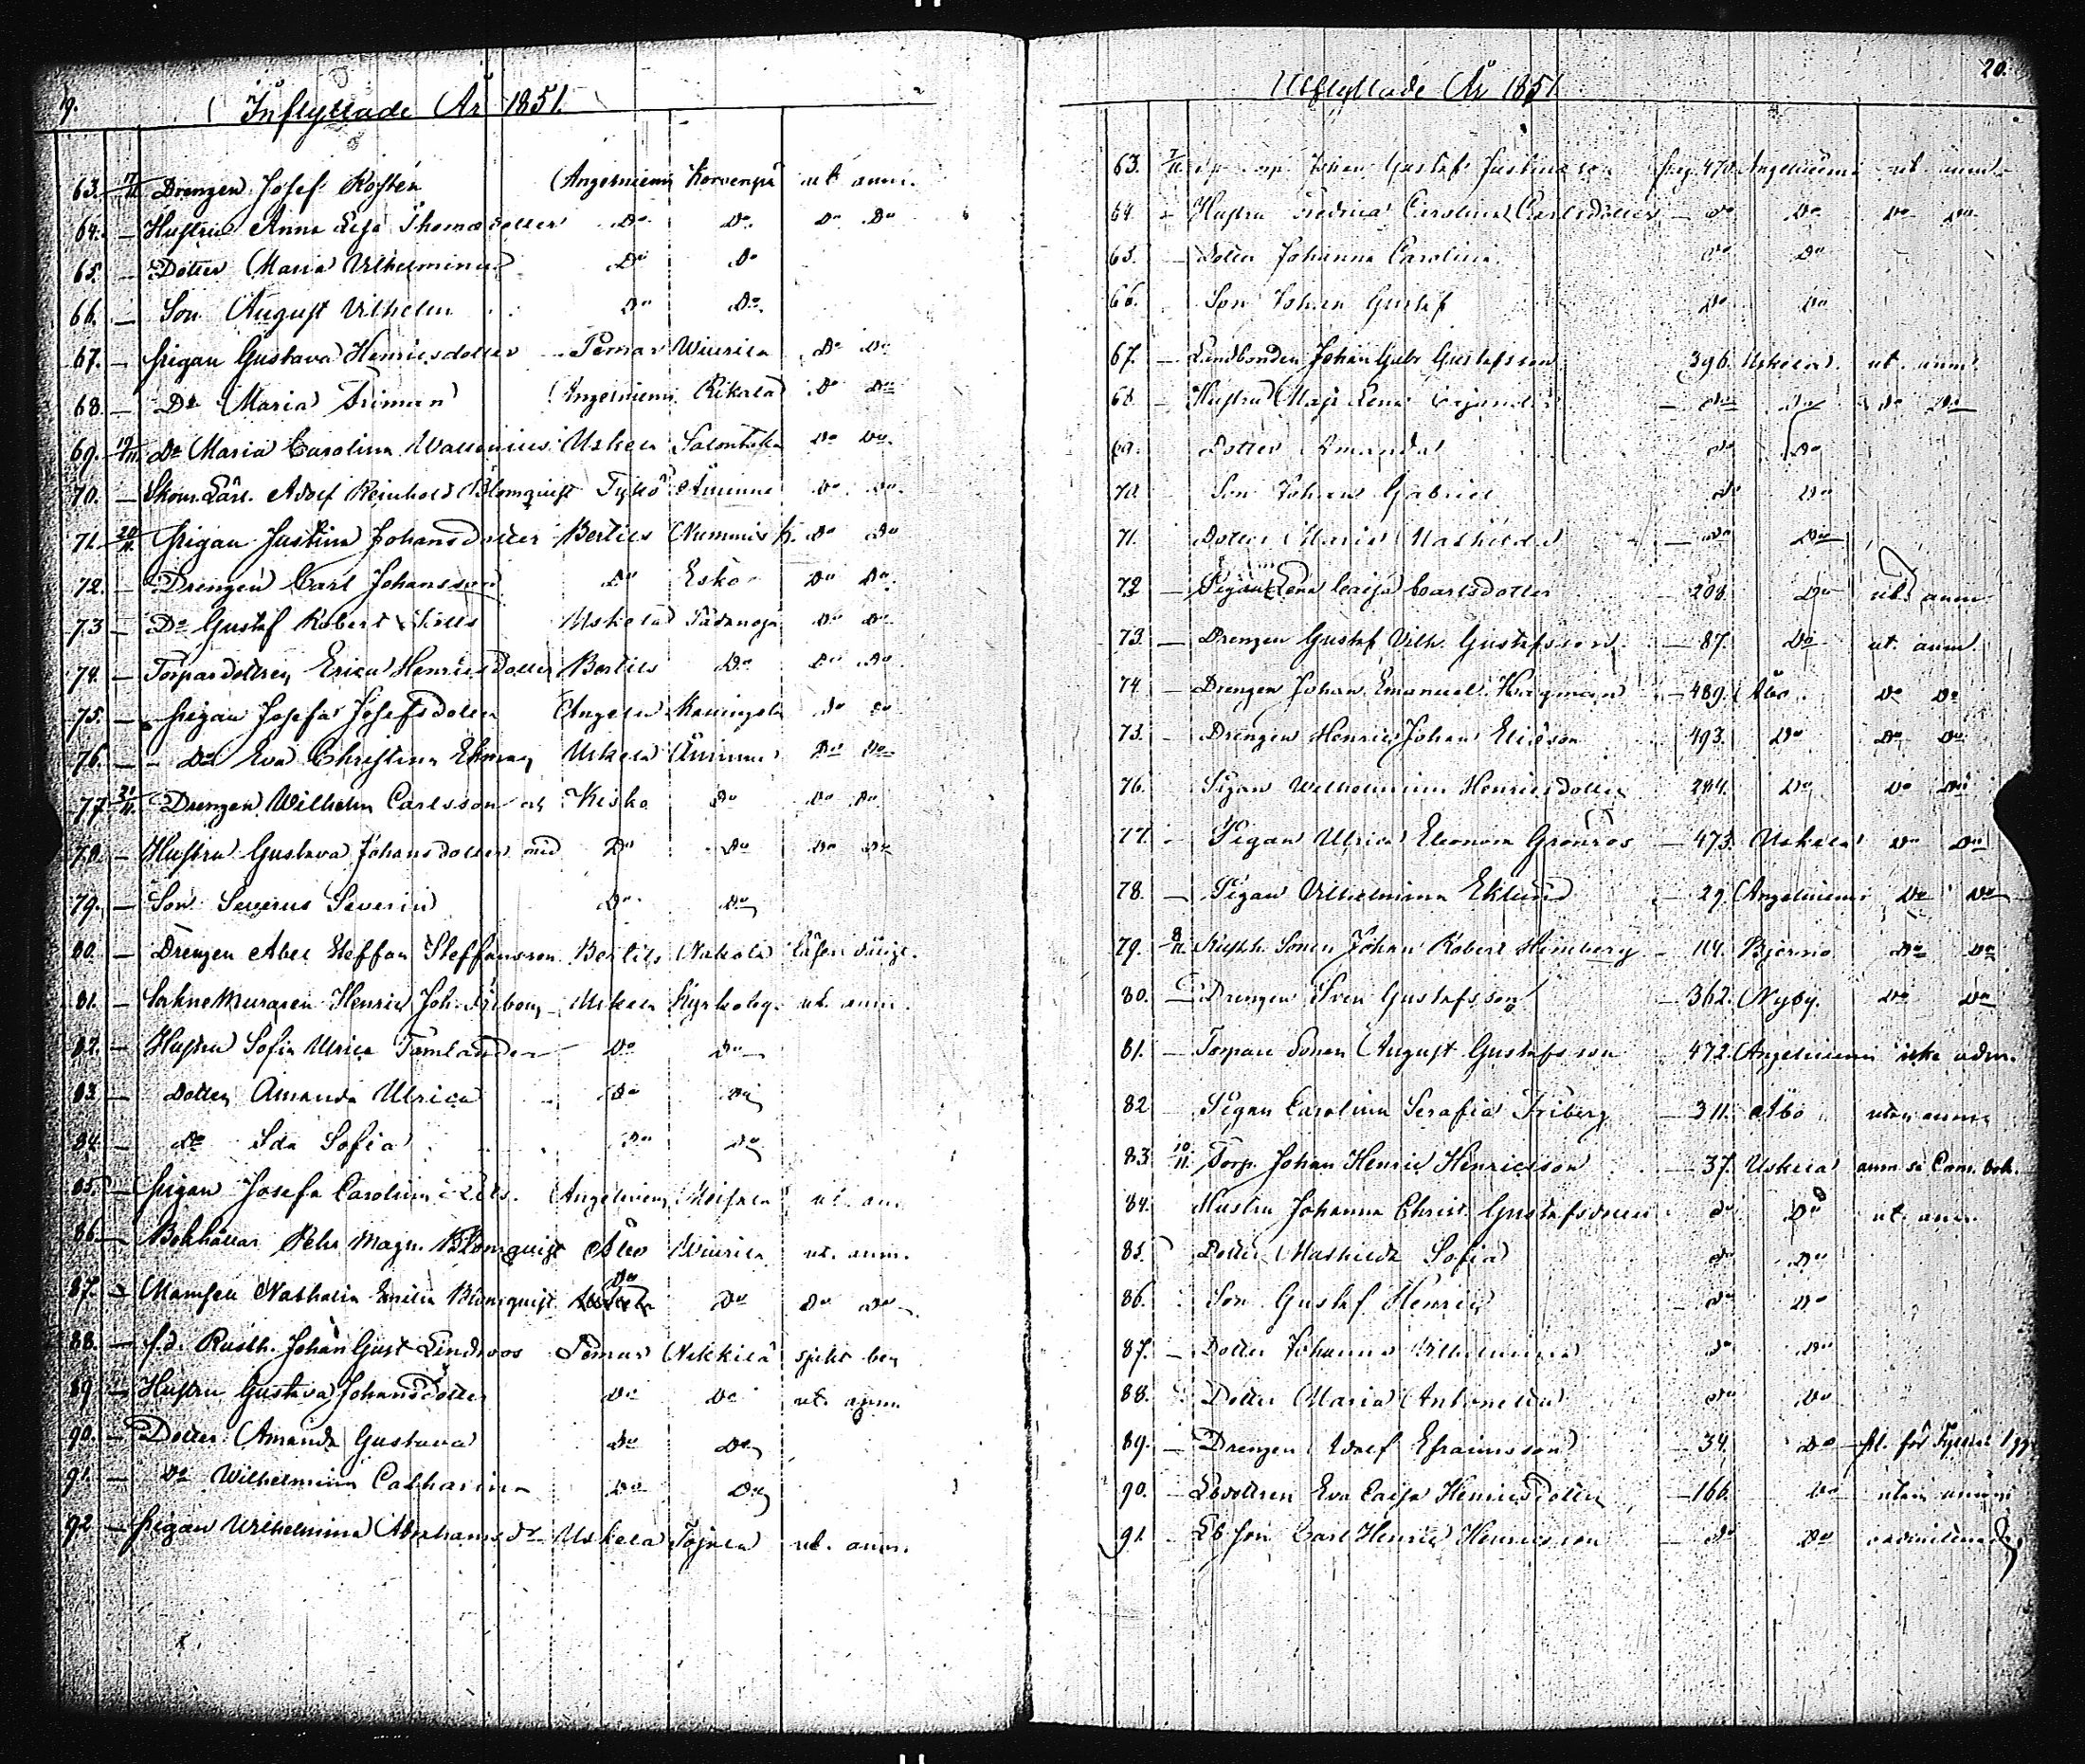 19.
Inflyttade År 1851.
63. 7/11 Drengen Josef Rosten Angelniemi Korvenpä ut anm.
64. — Hustru Anna Lisa Thomasdotter Do Do Do Do
65. — Dotter Maria Vilhelmina Do Do
66. — Son August Vilhelm Do Do
67. — Pigan Gustava Henricsdotter Pemar Wiurila Do Do
68. — Do Maria Friman Angelniemi Rikala Do Do
69. 19/11 Do Maria Carolina Wallenius Uskela Salontaka Do Do
70. — Skom. Lärl. Adolf Reinhold Blomquist Tykö Åminne Do Do
71. 20/11 Pigan Justina Johansdotter Bertils Nummis k. Do Do
72. — Drengen Carl Johansson Do Esko Do Do
73 — Do Gustaf Robert Uskela Do Do
74. — Torpardottren Erica Henricsdotter Bertils Do Do Do
75. — Pigan Josefa Josefsdotter Angeln. Do Do
76. — Do Eva Christina Ekman Uskela Åminne Do Do
77 21/11 Drengen Wilhelm Carlsson och Kisko Do Do Do
78. — Hustru Gustava Johansdotter med Do Do Do Do
79. — Son Severus Severin Do Do
80. — Drengen Abel Steffan Steffansson Bertils Nakola
81. — Henric Joh. Friberg Uskela Kyrkoby. ut. anm.
82. — Hustru Sofia Ulrica Tamlander Do Do
83. — Dotter Amanda Ulrica Do Do
84. — Do Ida Sofia Do Do
85. — Pigan Josefa Carolina Angelniemi ut. an.
86. — Bokhållar Pehr Magn. Blomquist Åbo Wiurila ut. anm.
87. — Mamsell Nathalia Emilia Blomquist Do Do Do Do
88. — f.d. Rusth. Johan Gust Lindroos Pemar Nikkilä
89 — Hustru Gustava Johansdotter Do Do ut. anm.
90. — Dotter Amanda Gustava Do Do
91. — Do Wilhelmina Catharina Do Do
92 — Pigan Wilhelmina Abrahamsdr Uskela ut. anm.
20.
Utflyttade År 1851
63. 7/11 Johan Gustaf pag. 470. Angelniemi ut. anm.
64 — Hustru Fredrica Carolina Carlsdotter — do Do Do Do
65. — Dotter Johanna Carolina do Do
66. Son Johan Gustaf Do Do
67. — Landbonden Johan Gabr. Gustafsson 396. Uskela ut. anm.
68. — Hustru Maja Lena — Do Do Do Do
69. Dotter Amanda do Do
70 Son Johan Gabriel do Do
71. Dotter Maria Mathilda — do Do
72 — Pigan Lena Caisa Carlsdotter — 208. Do ut. anm
73. — Drengen Gustaf Vilh. Gustafsson — 87. Do ut. anm.
74 — Drengen Johan Emanuel Hagman — 489. Åbo Do Do
75. — Drengen Henric Johan Ericsson 493. Do Do Do
76. Pigan Wilhelmina Henricsdotter 244. Do Do Do
77. — Pigan Ulrica Eleonora Grönroos — 473. Uskela Do Do
78. — Pigan Vilhelmina Eklund — 29. Angelniemi Do Do
79. 8/11 Rusth. Sonen Johan Robert Heimberg — 114. Bjerno Do Do
80. — Drengen Sven Gustafsson — 362. Nyby. Do Do
81. — Torpare Sonen August Gustafsson 472. Angelniemi icke adm.
82 Pigan Carolina Serafia Friberg — 311. Åbo utan anm.
83. 10/11 Torp. Johan Henric Henricsson — 37. Uskela anm. se Com. bok.
84. Hustru Johanna Christ. Gustafsdotter do Do ut. anm.
85. Dotter Mathilda Sofia do Do
86. Son Gustaf Henric — do Do
87. — Dotter Johanna Vilhelmina do Do
88. Dotter Maria Antonetta do Do
89. — Drengen Adolf Efraimsson — 34. Do
90. — Lbdottren Eva Caisa Henricsdotter — 166. Do utan anm.
91. — Lb son Carl Henric Henricsson — do Do